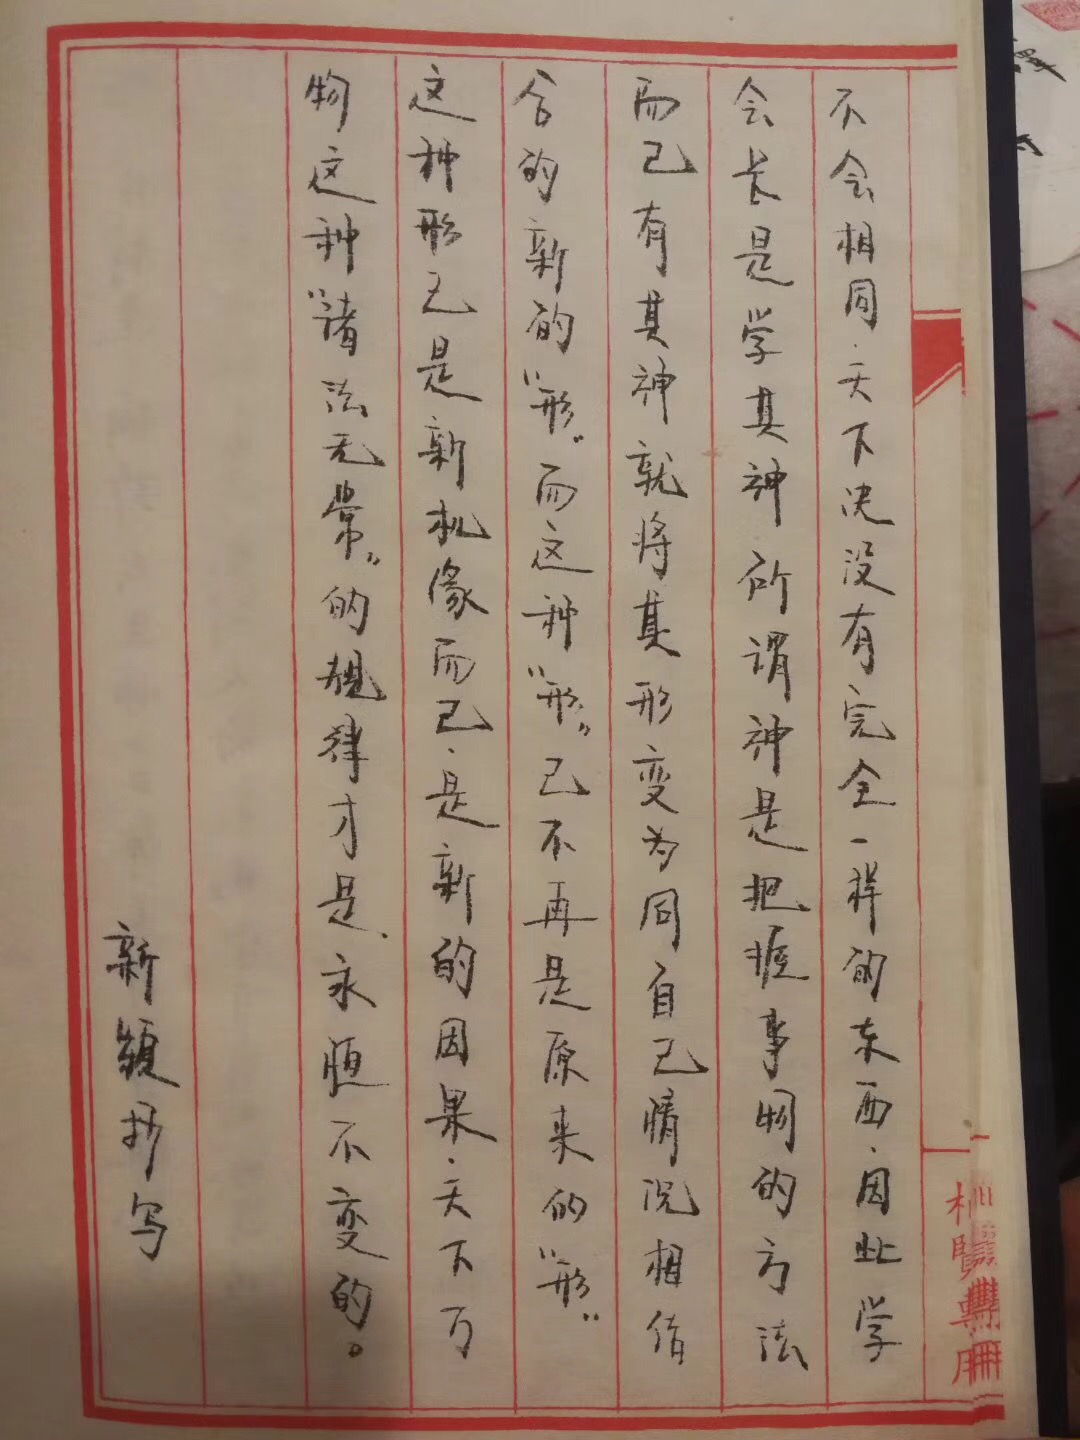 不会相同.天下决没有完全一样的东西.因此学
会长是学其神所谓神是把握事物的方法
而已有其神就将其形变为同自己情况相佮
合的新的“形”而这种“形”已不再是原来的“形”
这种形已是新机缘而已.是新的因果.天下万
物这种“诸法无常”的规律才是.永恒不变的。
新颖抄写